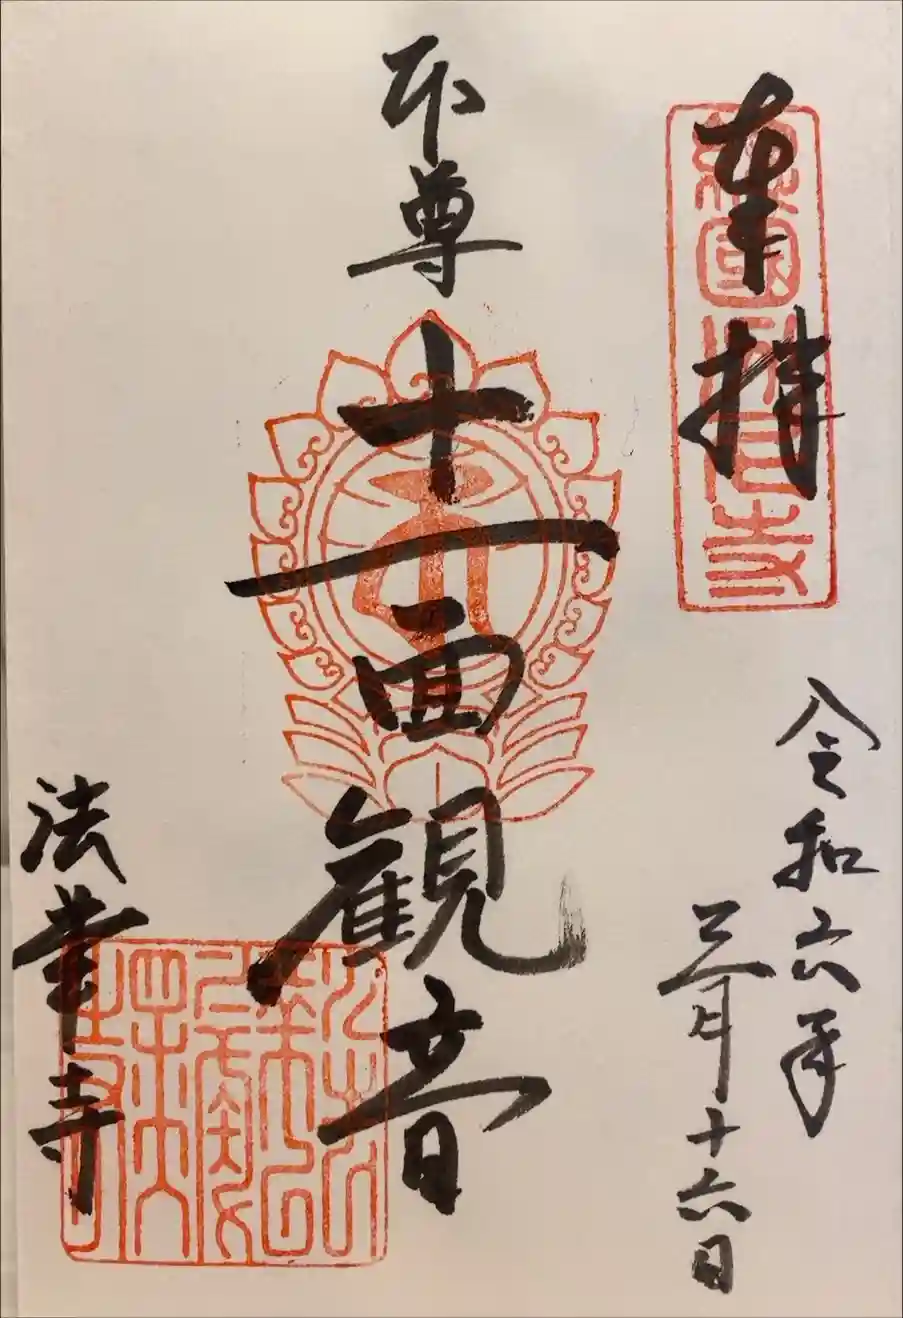 奉拝
令和六年
三月十六日
本尊
十一面観音
法華寺